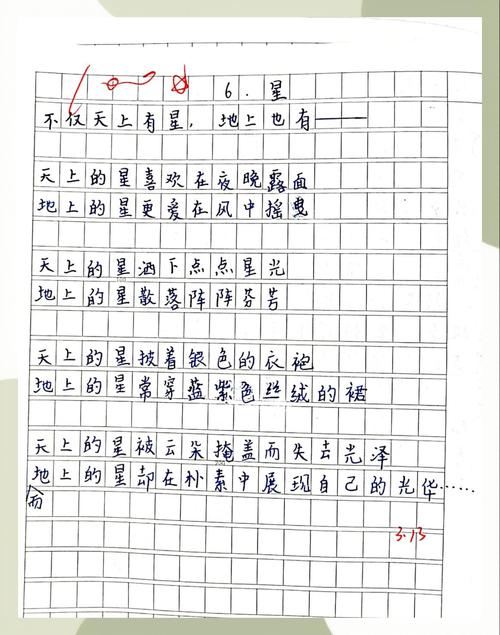 6.星
不仅天上有星，地上也有——
天上的星喜欢在夜晚露面
地上的星更爱在风中摇曳
天上的星洒下点点星光
地上的星散落阵阵芬芳
天上的星披着银色的衣袍
地上的星常穿蓝紫色丝绒的裙
天上的星被云朵掩盖而失去光泽
地上的星却在朴素中展现自己的光华……
而
3.13